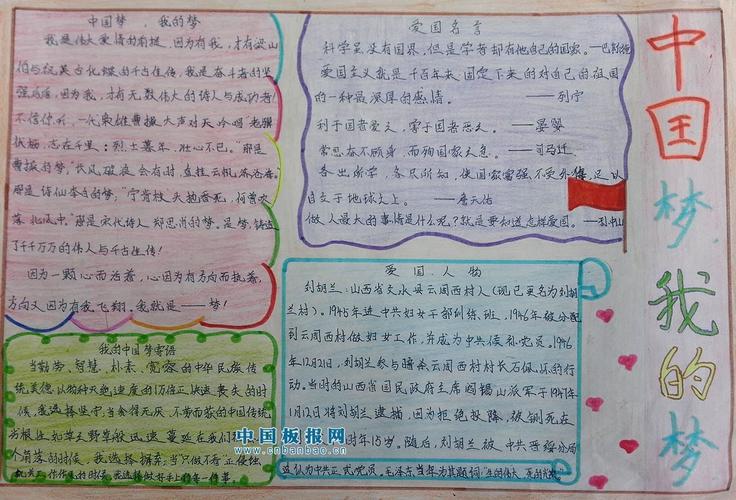 中国梦,我的梦
我是伟大爱情的前提,因为有我,才有梁山
伯与祝英台化蝶的千古佳传,我是奋斗者的坚
强后盾,因为我,才有无数伟大的诗人与成功者!
不信你听,一代枭雄曹操大声对天吟唱"老骥
伏枥,志在千里;烈士暮年,壮心不已。"那是
曹操的梦;"长风破浪会有时,直挂云帆济沧海。"
那是诗仙李白的梦;"宁肯枝头抱香死,何曾吹
落北风中。"那是宋代诗人郑思肖的梦。是梦,铸造
了千千万万的伟人与千古佳传!
因为一颗心而活着,心因为有方向而执着,
方向又因为有我飞翔。我就是——梦!
我的中国梦寄语
当勤劳、智慧、朴素、宽容的中华民族传
统美德以物种灭绝速度的1万倍正快速丧失的时
候,我选择坚守;当贪得无厌、不劳而获的中国传统
劣根性如草野草般迅速蔓延在我们
角落的时候,我选择摒弃;当"只做不看"正侵蚀
的时候,我选择做好手上的每一件事。
爱国名言
科学虽没有国界,但是学者却有他自己的国家。—巴斯德
爱国主义就是千百年来固定下来的对自己的祖国
的一种最深厚的感情。——列宁
利于国者爱之,害于国者恶之。——晏婴
常思奋不顾身,而殉国家之急。——司马迁
各出所学,各尽所知,使国家富强不受外侮,足以
自立于地球之上。——詹天佑
做人最大的事情是什么呢?就是要知道怎样爱国。—孙中山
爱国人物
刘胡兰:山西省文水县云周西村人(现已更名为刘胡
兰村)。1945年进中共妇女干部训练班,1946年被分配
到云周西村做妇女工作,并成为中共候补党员。1946
年12月21日,刘胡兰参与暗杀云周西村村长石佩怀的行
动。当时的山西省国民政府主席阎锡山派军于1947年
1月12日将刘胡兰逮捕,因为拒绝投降,被铡死在
时年15岁。随后,刘胡兰被中共晋绥分局
追认为中共正式党员。毛泽东当年为其题词:"生的伟大,死的光荣"
中国梦,我的梦
中国板报网
www.cnbanbao.cn